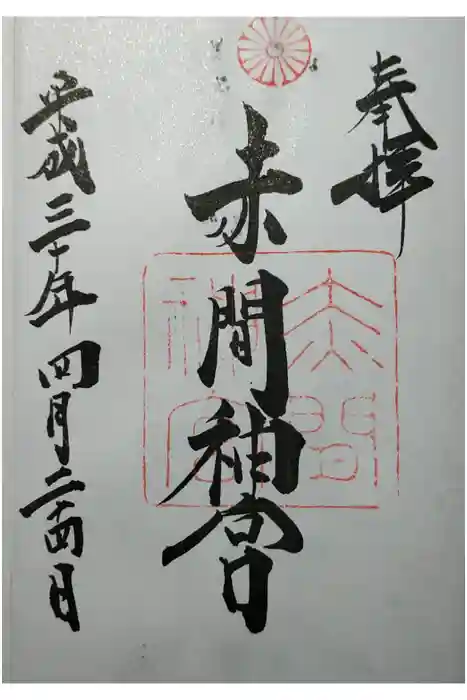 奉拝
赤間神宮
赤間神宮
平成三十年四月二十四日